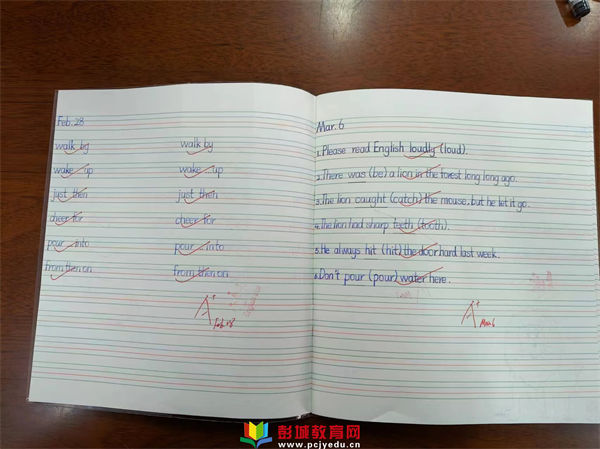 Feb. 28
walk by walk by
wake up wake up
just then just then
cheer for cheer for
pour into pour into
from then on from then on
A+
Feb 28
Mar. 6
1. Please read English loudly (loud).
2. There was (be) a lion in the forest long long ago.
3. The lion caught (catch) the mouse, but he let it go.
4. The lion had sharp teeth (tooth).
5. He always hit (hit) the door hard last week.
6. Don't pour (pour) water here.
A+
Mar 6
彭城教育网
www.pcjyedu.cn